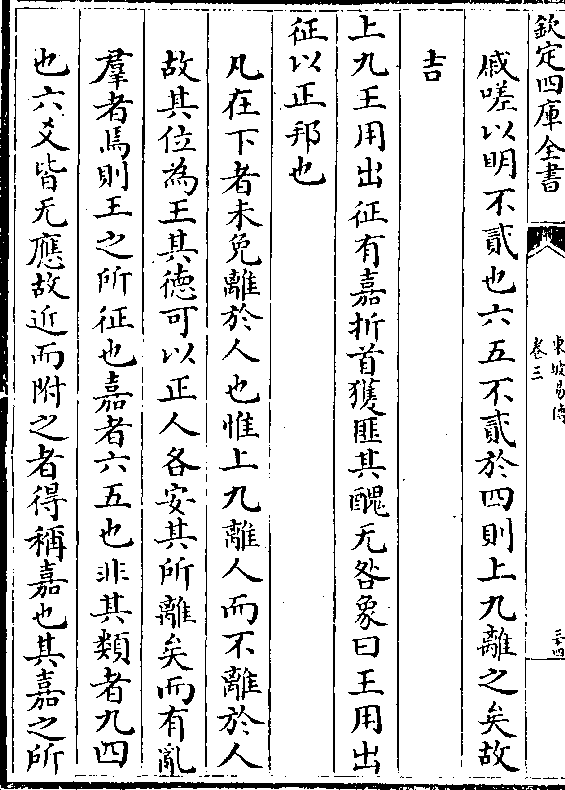 欽定四庫全書
東坡易傳
卷三
三十四
戚嗟以明不貳也六五不貳於四則上九離之矣故
吉
上九王用出征有嘉折首獲匪其醜无咎象曰王用出
征以正邦也
凡在下者未免離於人也惟上九離人而不離於人
故其位為王其德可以正人各安其所離矣而有亂
羣者焉則王之所征也嘉者六五也非其類者九四
也六爻皆无應故近而附之者得稱嘉也其嘉之所